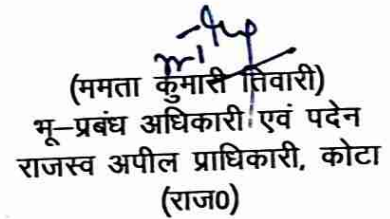 (ममता कुमारी तिवारी)
भू-प्रबंध अधिकारी एवं पदेन
राजस्व अपील प्राधिकारी, कोटा
(राज0)